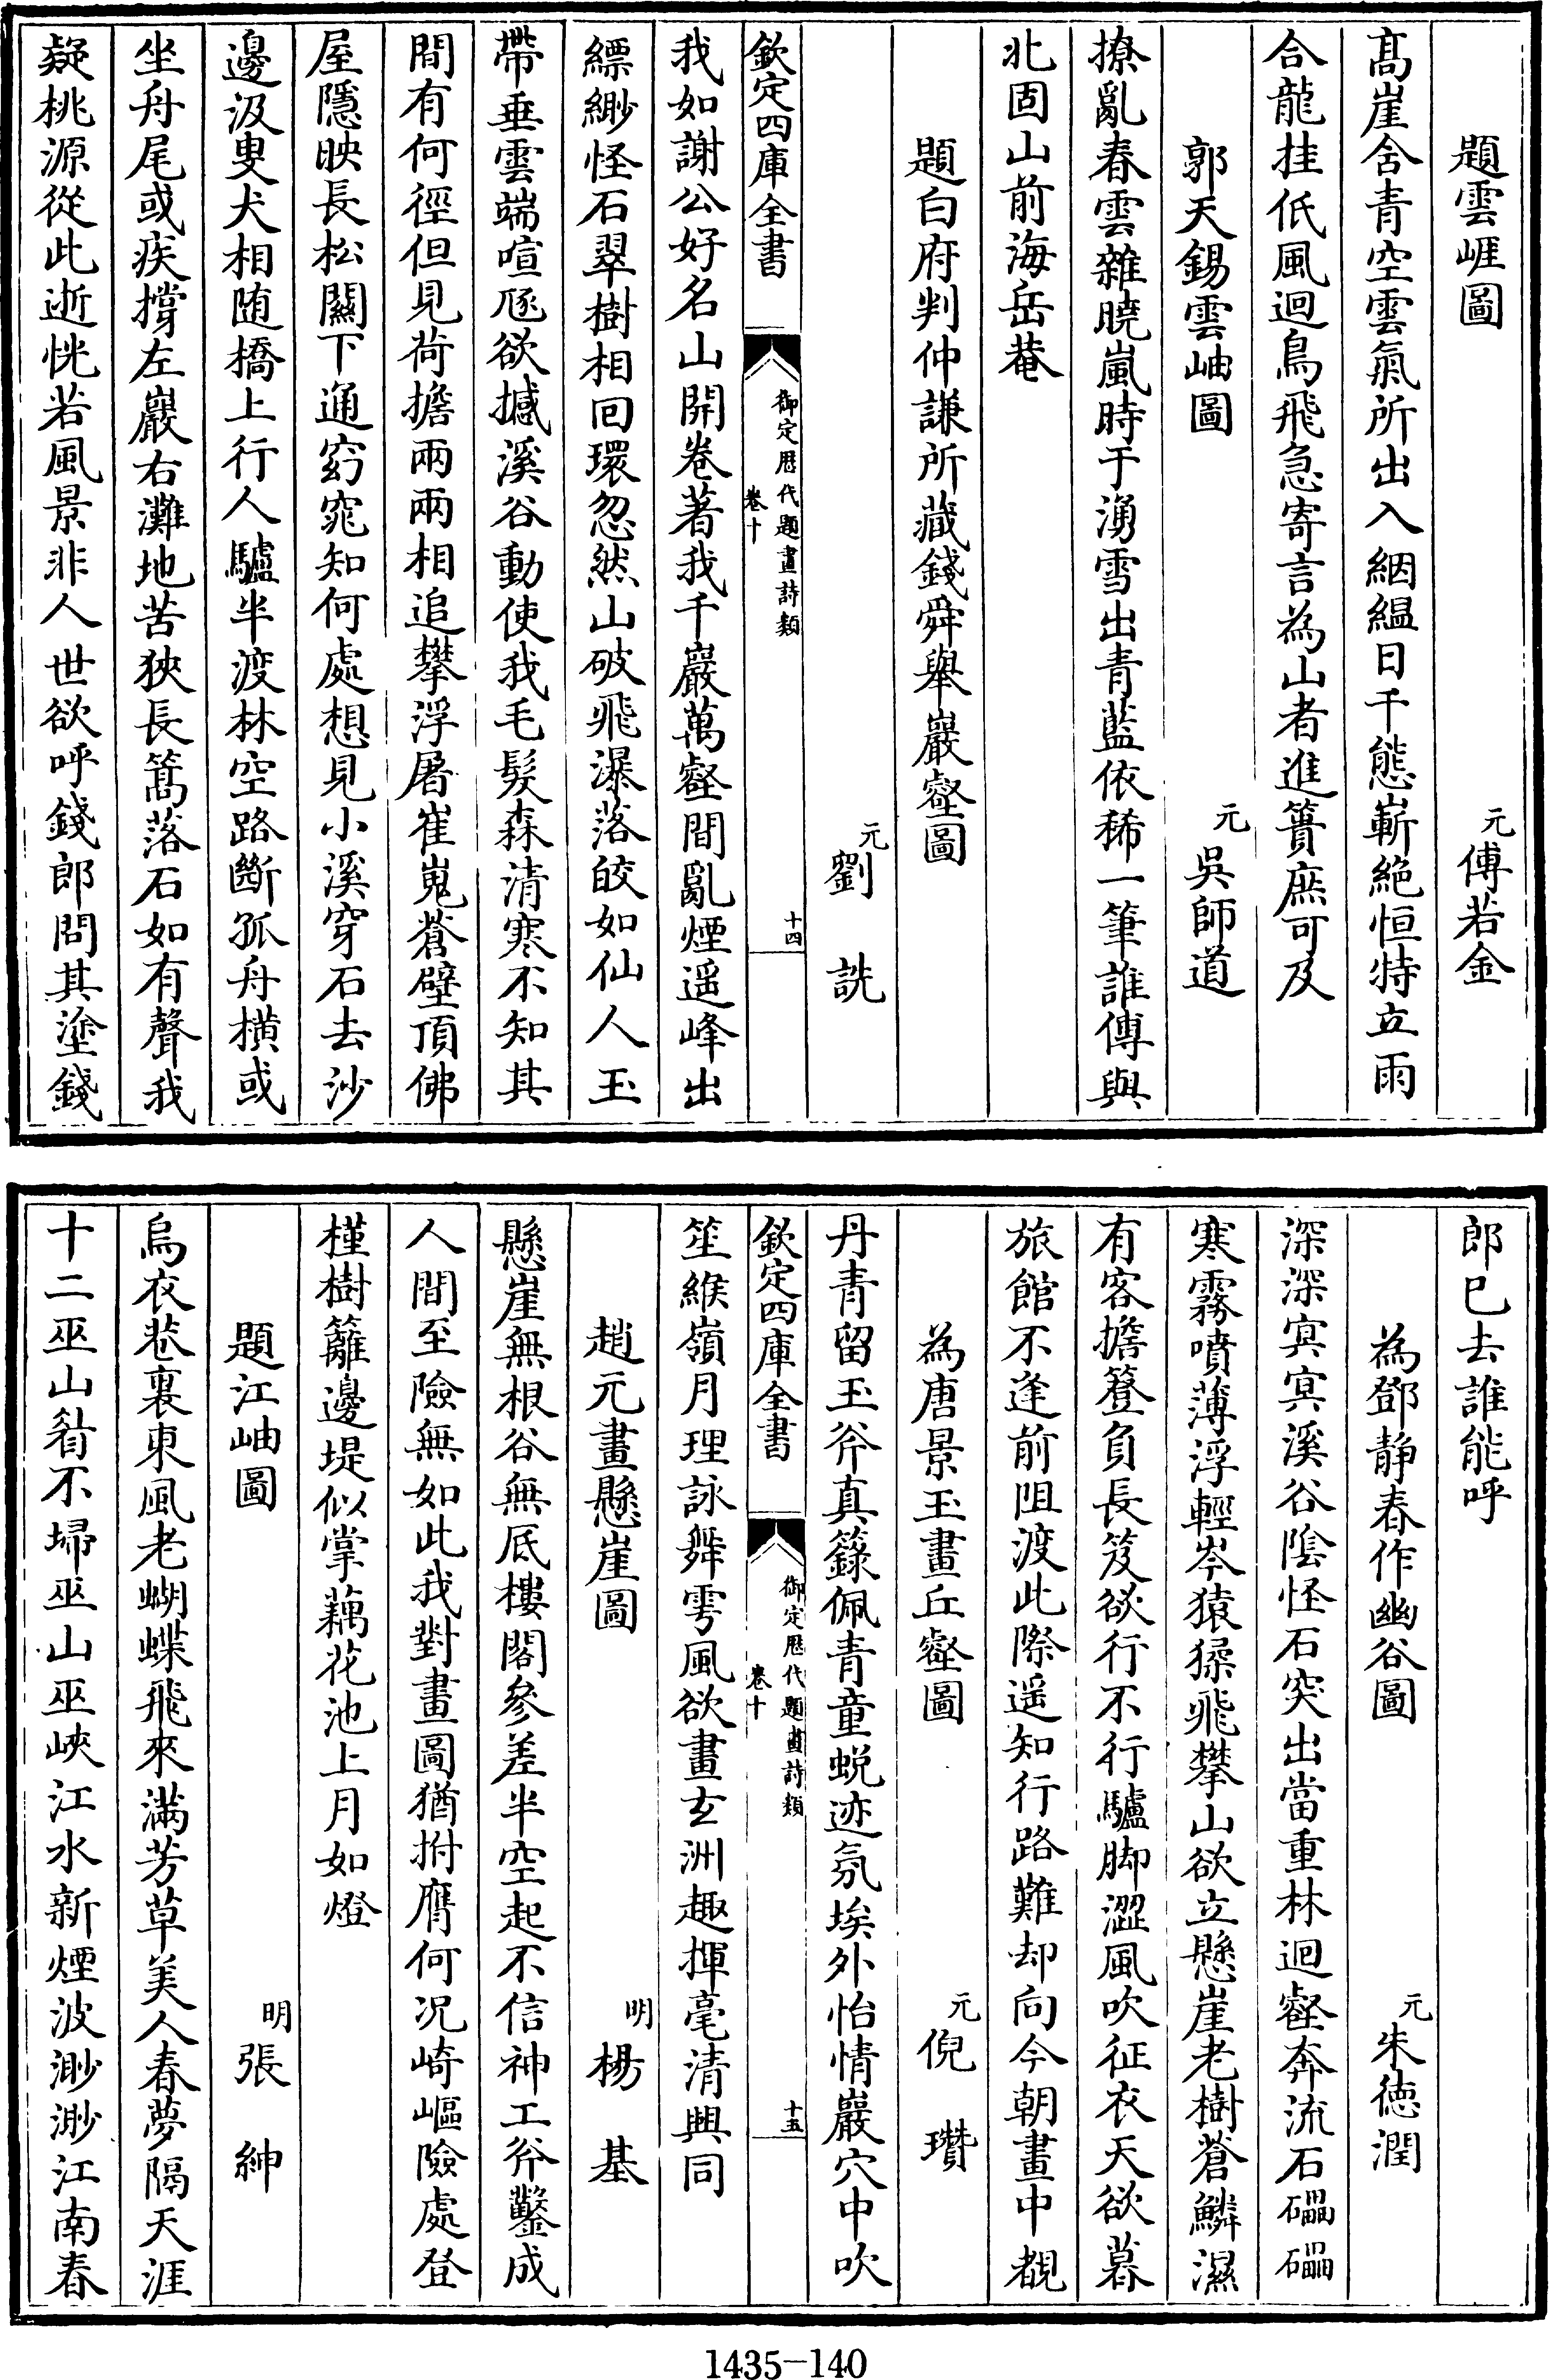 題雲崕圖
元傅若金
髙崖含青空雲氣所出入絪緼日千態嶄絶恒特立雨
合龍挂低風迴鳥飛急寄言為山者進簣庶可及
郭天錫雲岫圖
元吳師道
撩亂春雲雜曉嵐時于湧雪出青藍依稀一筆誰傳與
北固山前海岳菴
題白府判仲謙所藏錢舜舉巖壑圖
元劉　詵
欽定四庫全書
御定歴代題畫詩類
卷十
十四
我如謝公好名山開卷著我千巖萬壑間亂煙遥峰出
縹緲怪石翠樹相回環忽然山破飛瀑落皎如仙人玉
帶垂雲端喧豗欲撼溪谷動使我毛髮森清寒不知其
間有何徑但見荷擔兩兩相追攀浮屠崔嵬蒼壁頂佛
屋隱映長松關下通窈窕知何處想見小溪穿石去沙
邊汲叟犬相随橋上行人驢半渡林空路斷孤舟横或
坐舟尾或疾撐左巖右灘地苦狹長篙落石如有聲我
疑桃源從此逝恍若風景非人世欲呼錢郎問其塗錢
郎已去誰能呼
為鄧静春作幽谷圖
元朱德潤
深深㝠㝠溪谷陰怪石突出當重林迴壑奔流石礧礧
寒霧噴薄浮輕岑猿猱飛攀山欲立懸崖老樹蒼鱗濕
有客擔簦負長笈欲行不行驢脚澀風吹征衣天欲暮
旅館不逢前阻渡此際遥知行路難却向今朝畫中覩
為唐景玉畫丘壑圖
元倪　瓚
丹青留玉斧真籙佩青童蜕迹氛埃外怡情巖穴中吹
欽定四庫全書
御定歴代題畫詩類
卷十
十五
笙緱嶺月理詠舞雩風欲畫玄洲趣揮毫清興同
趙元畫懸崖圖
明楊　基
懸崖無根谷無底樓閣參差半空起不信神工斧鑿成
人間至險無如此我對畫圖猶拊膺何况崎嶇險處登
槿樹籬邊堤似掌藕花池上月如燈
題江岫圖
明張　紳
烏衣巷裏東風老蝴蝶飛來滿芳草美人春夢隔天涯
十二巫山眉不埽巫山巫峽江水新煙波渺渺江南春
1435-140